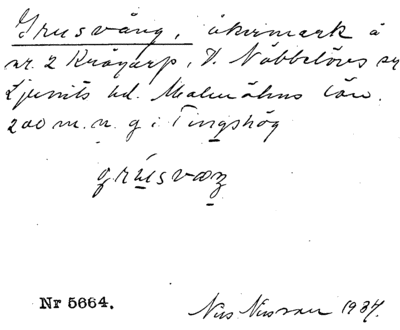 Grusvång, åkermark å
nr. 2 Krågarp, V. Nöbbelövs sn
Ljunits hd. Malmöhus län.
200 m. n. g i Tingshög
grúsvæŋ
Nr 5664.
Nils Nilsson 1937.